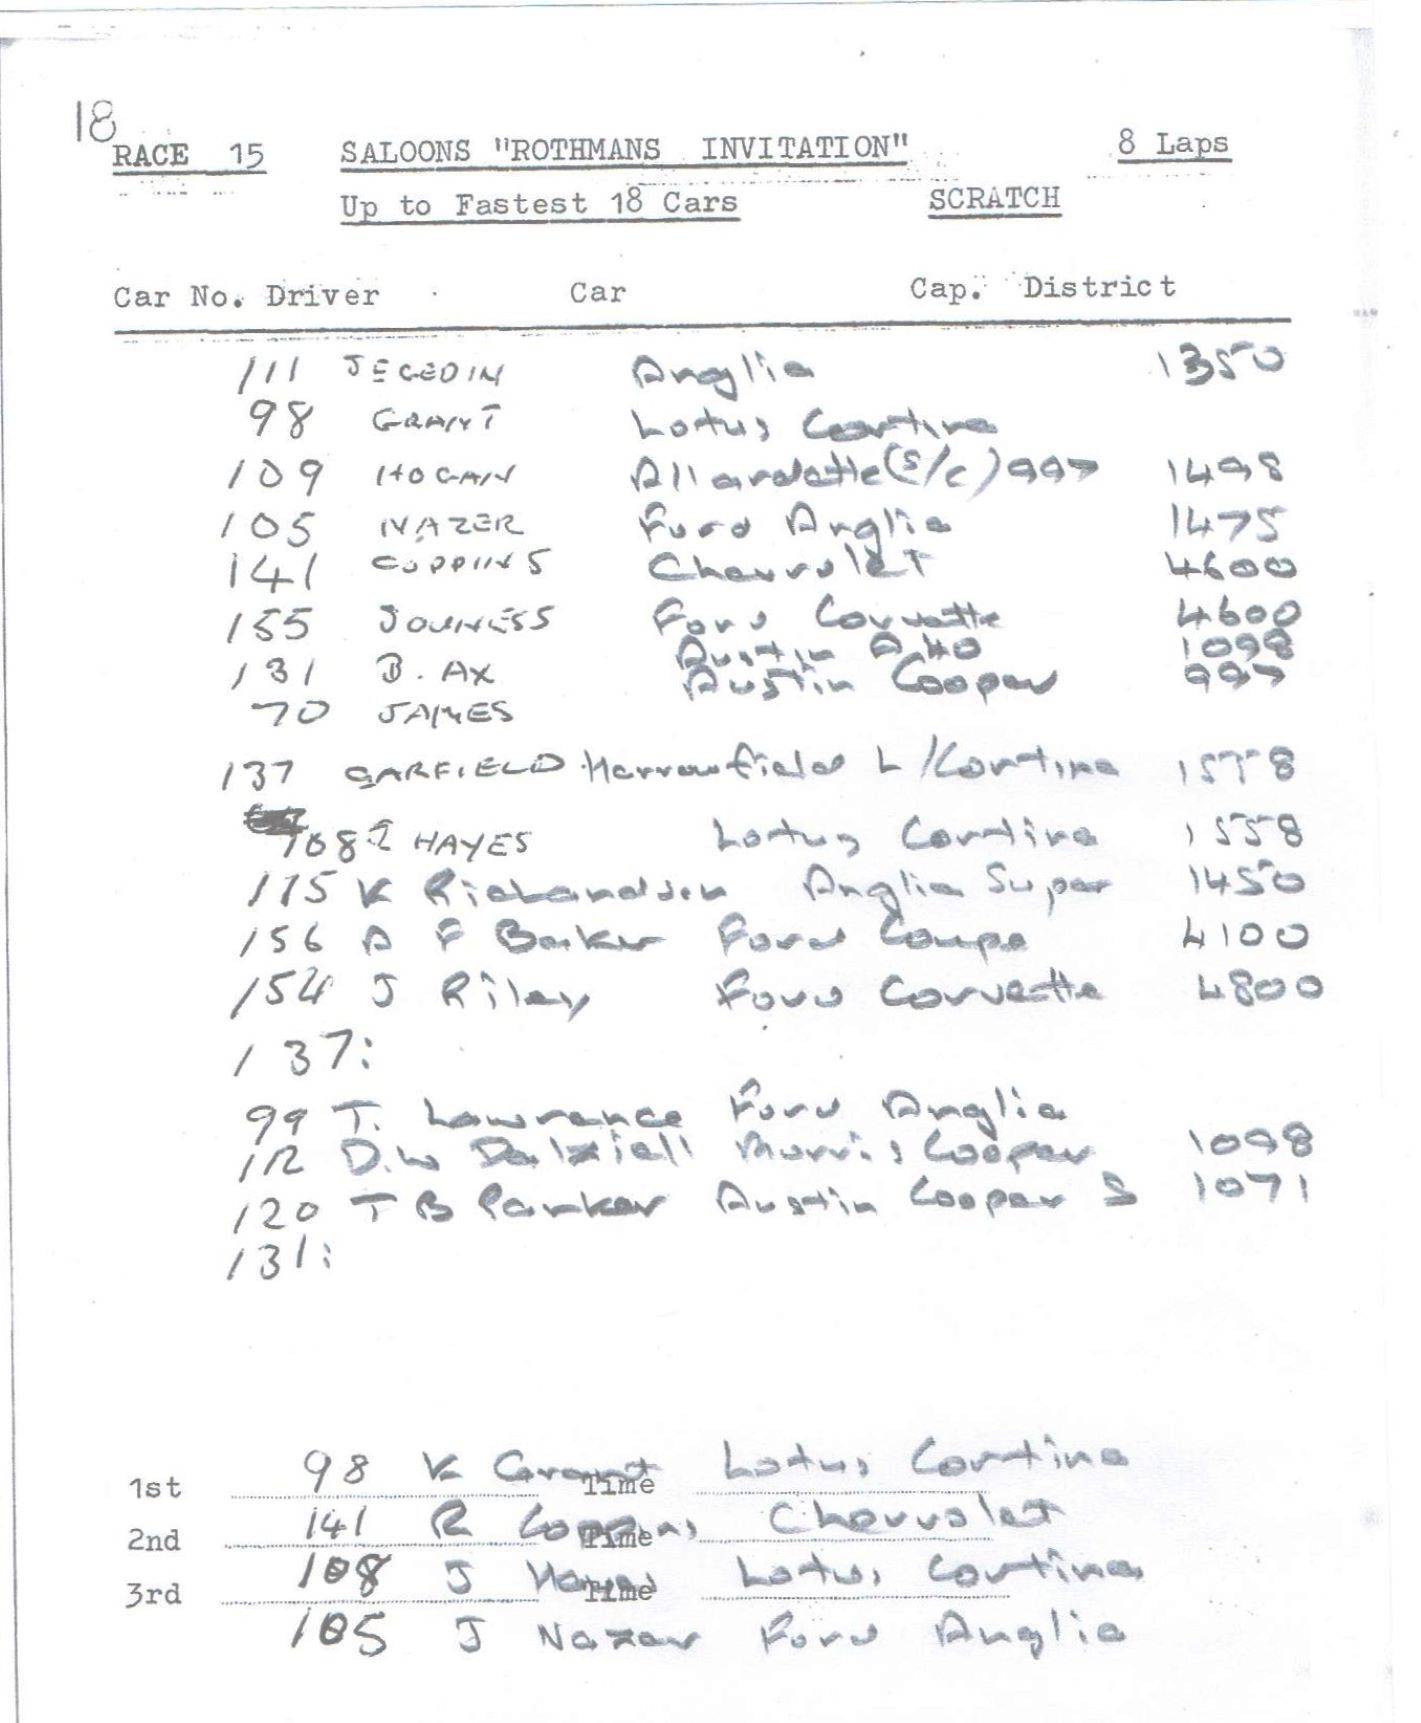 18
RACE 15 SALOONS "ROTHMANS INVITATION" 8 Laps
Up to Fastest 18 Cars SCRATCH
Car No. Driver Car Cap. District
111 JEGEDIN Anglia 1350
98 GRANT Lotus Cortina
109 HOGAN Allardette (s/c) 997 1498
105 NAZER Ford Anglia 1475
141 COPPINS Chevrolet 4600
155 JOUNESS Ford Corvette 4600
Austin A40 1098
131 B. AX Austin Cooper 997
70 JAMES
137 GARFIELD Harrowfield L/Cortina 1558
108 J HAYES Lotus Cortina 1558
115 K Richardson Anglia Super 1450
156 A F Barker Ford Coupe 4100
154 J Riley Ford Corvette 4800
137:
99 T. Lawrence Ford Anglia
112 D.W Dalziell Morris Cooper 1098
120 T B Parker Austin Cooper S 1071
131:
1st 98 K Grant Time Lotus Cortina
2nd 141 R Coppins Time Chevrolet
3rd 108 J Hayes Time Lotus Cortina
105 J Nazer Ford Anglia